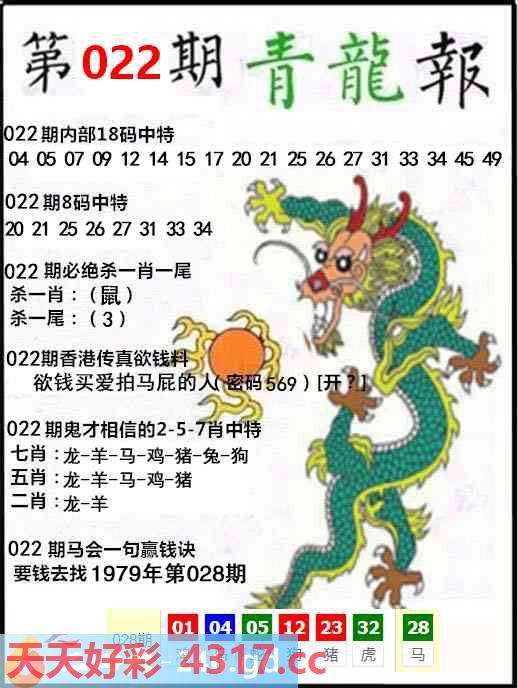 第022期青龍報
022期内部18码中特
04 05 07 09 12 14 15 17 20 21 25 26 27 31 33 34 45 49
022期8码中特
20 21 25 26 27 31 33 34
022期必绝杀一肖一尾
杀一肖：（鼠）
杀一尾：（3）
022期香港传真欲钱料
欲钱买爱拍马屁的人（密码569）[开？]
022期鬼才相信的2-5-7肖中特
七肖：龙-羊-马-鸡-猪-兔-狗
五肖：龙-羊-马-鸡-猪
二肖：龙-羊
022期马会一句赢钱诀
要钱去找1979年第028期
028期 01 04 05 12 23 32 28
猪 虎 马
天天好彩 4317.cc